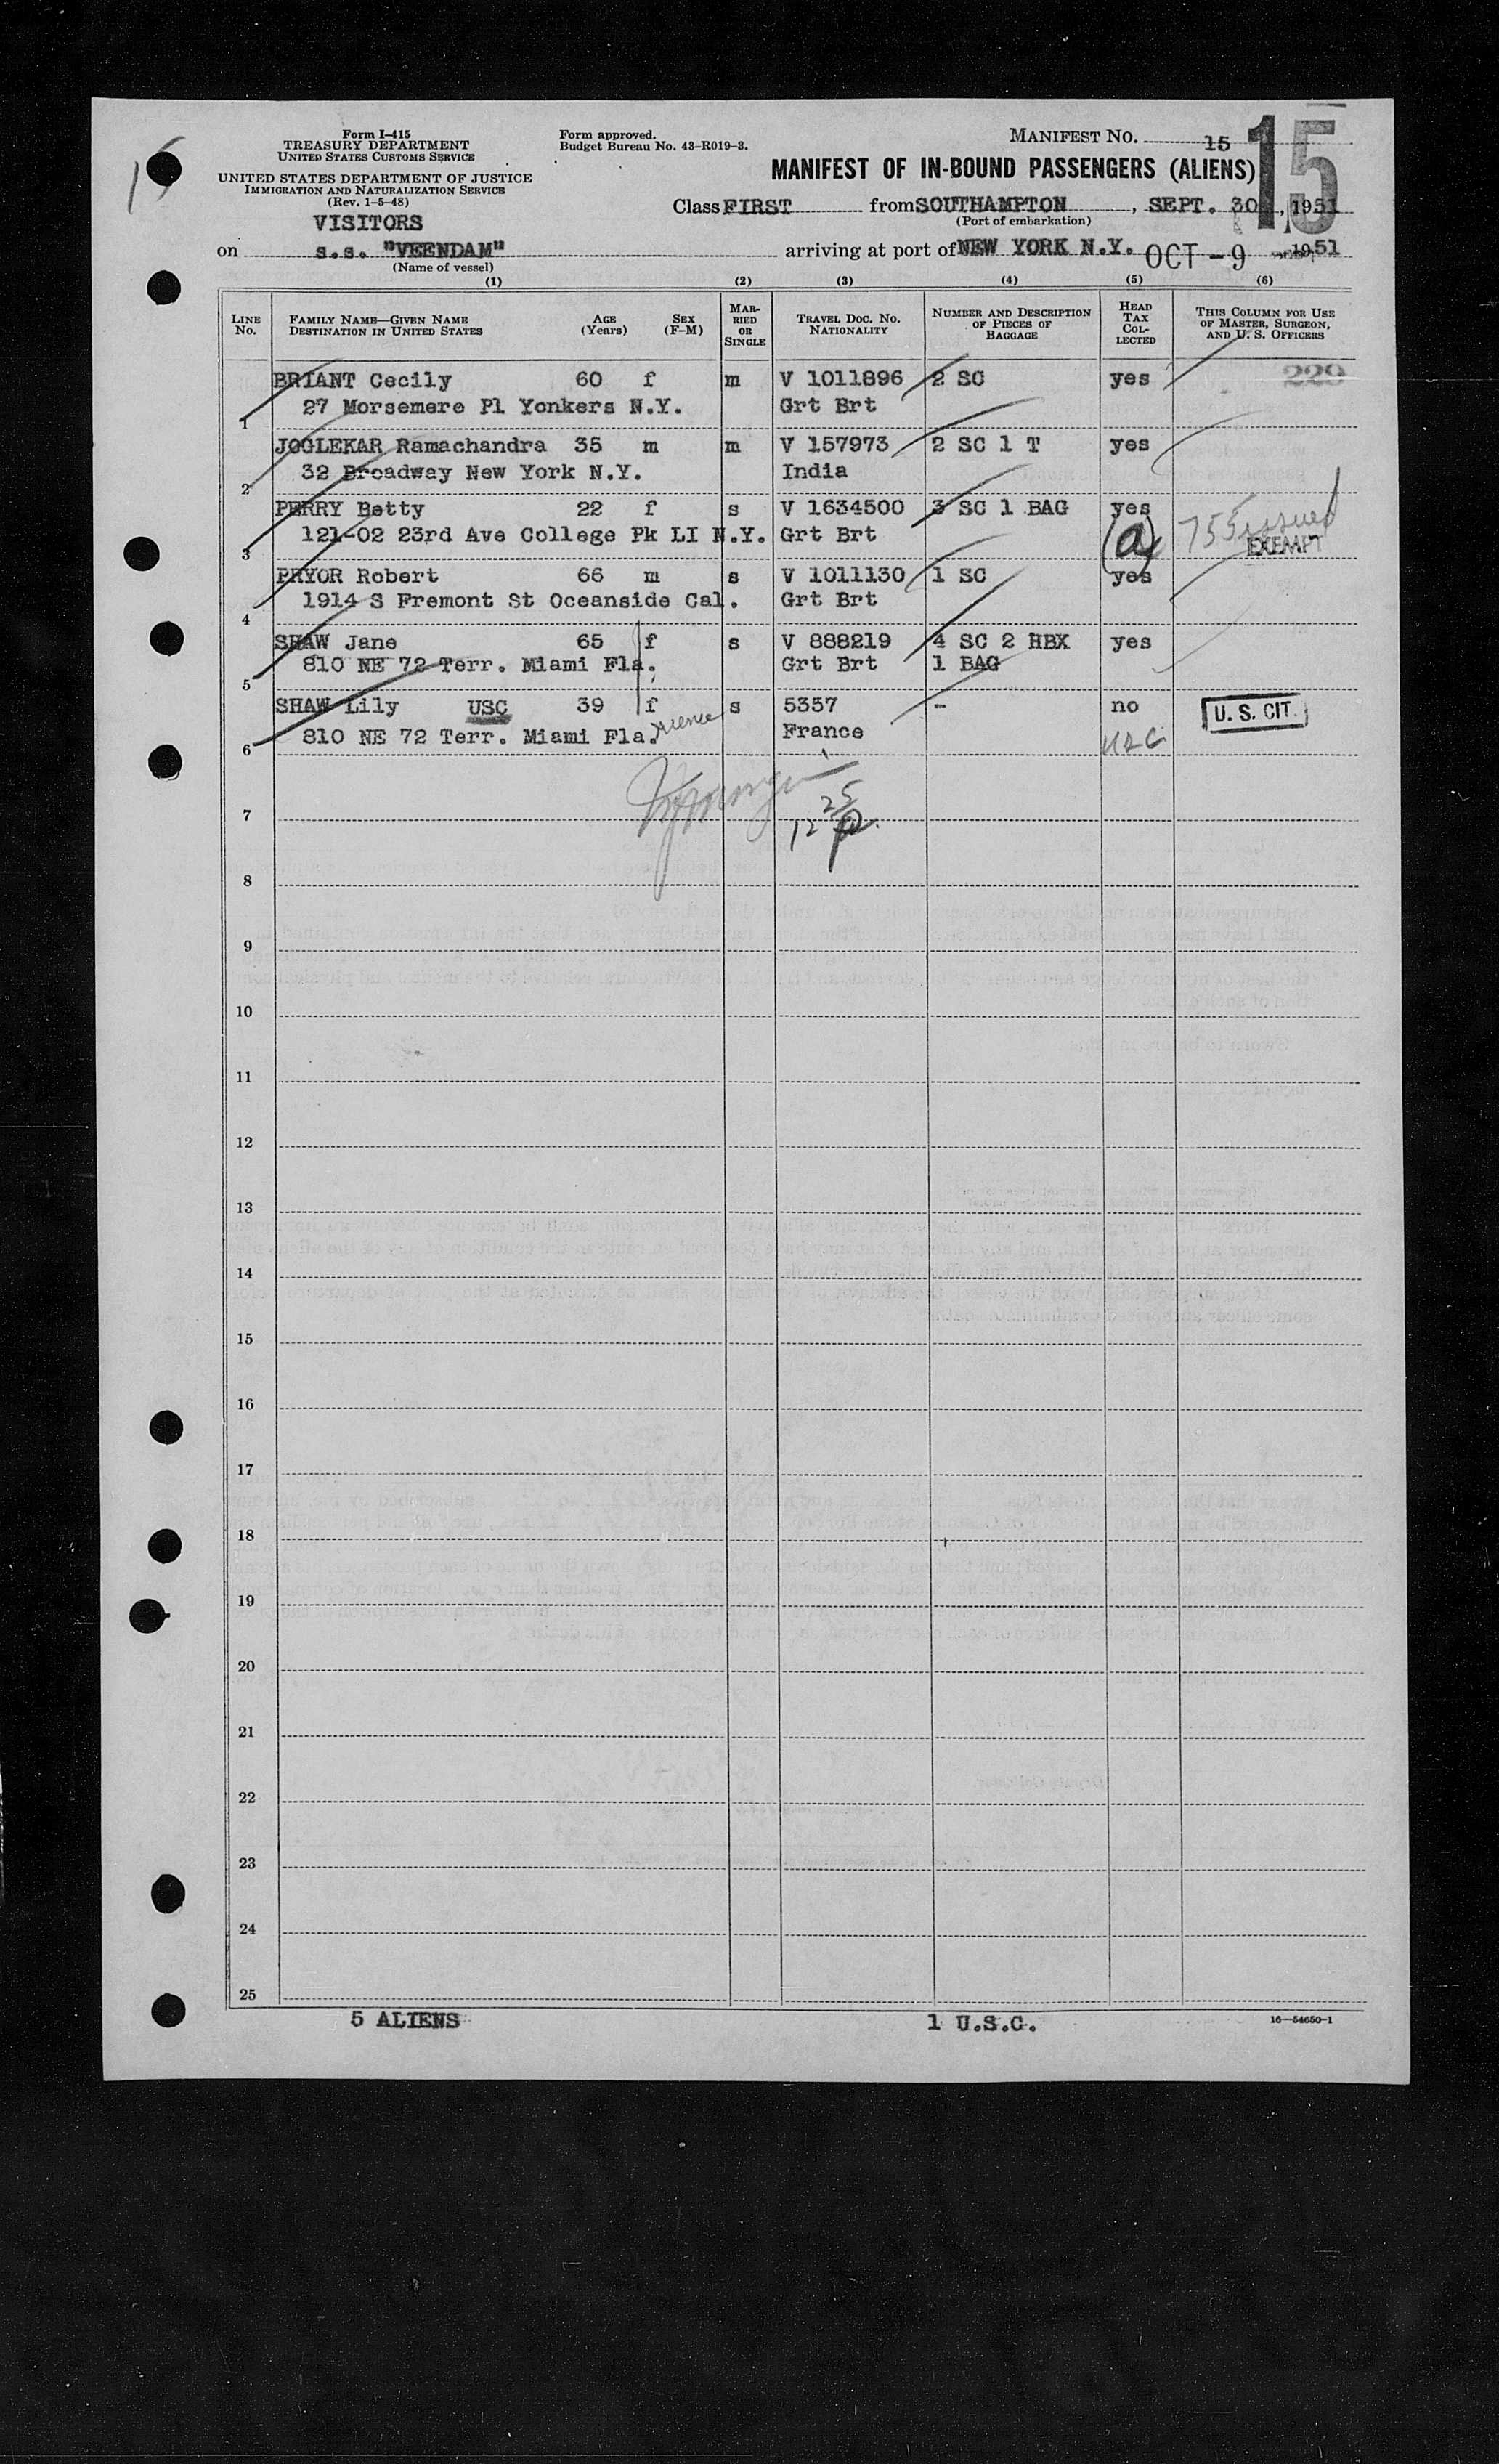 Form I-415
TREASURY DEPARTMENT
UNITED STATES CUSTOMS SERVICE
UNITED STATES DEPARTMENT OF JUSTICE
IMMIGRATION AND NATURALIZATION SERVICE
(Rev. 1-5-48)
VISITORS
Form approved.
Budget Bureau No. 43-R019-3.
MANIFEST NO. 15
15
MANIFEST OF IN-BOUND PASSENGERS (ALIENS)
Class FIRST from SOUTHAMPTON, SEPT. 30, 1951
(Port of embarkation)
on s.s. "VEENDAM" arriving at port of NEW YORK N.Y. OCT - 9 1951
(Name of vessel)
(1) (2) (3) (4) (5) (6)
LINE No. FAMILY NAME—GIVEN NAME DESTINATION IN UNITED STATES AGE (Years) SEX (F-M) MARRIED OR SINGLE TRAVEL DOC. NO. NATIONALITY NUMBER AND DESCRIPTION OF PIECES OF BAGGAGE HEAD TAX COLLECTED THIS COLUMN FOR USE OF MASTER, SURGEON, AND U. S. OFFICERS
BRIANT Cecily 60 f m V 1011896 2 SC yes 229
1 27 Morsemere Pl Yonkers N.Y. Grt Brt
JOGLEKAR Ramachandra 35 m m V 157973 2 SC 1 T yes
2 32 Broadway New York N.Y. India
PERRY Betty 22 f s V 1634500 3 SC 1 BAG yes 755 issued
3 121-02 23rd Ave College Pk LI N.Y. Grt Brt (a) EXEMPT
PRYOR Robert 66 m s V 1011130 1 SC yes
4 1914 S Fremont St Oceanside Cal. Grt Brt
SHAW Jane 65 f s V 888219 4 SC 2 HBX yes
5 810 NE 72 Terr. Miami Fla. Grt Brt 1 BAG
SHAW Lily USC 39 f s 5357 - no U. S. CIT.
6 810 NE 72 Terr. Miami Fla. France USC
7
12 25
8
9
10
11
12
13
14
15
16
17
18
19
20
21
22
23
24
25
5 ALIENS 1 U.S.C. 16—54650-1